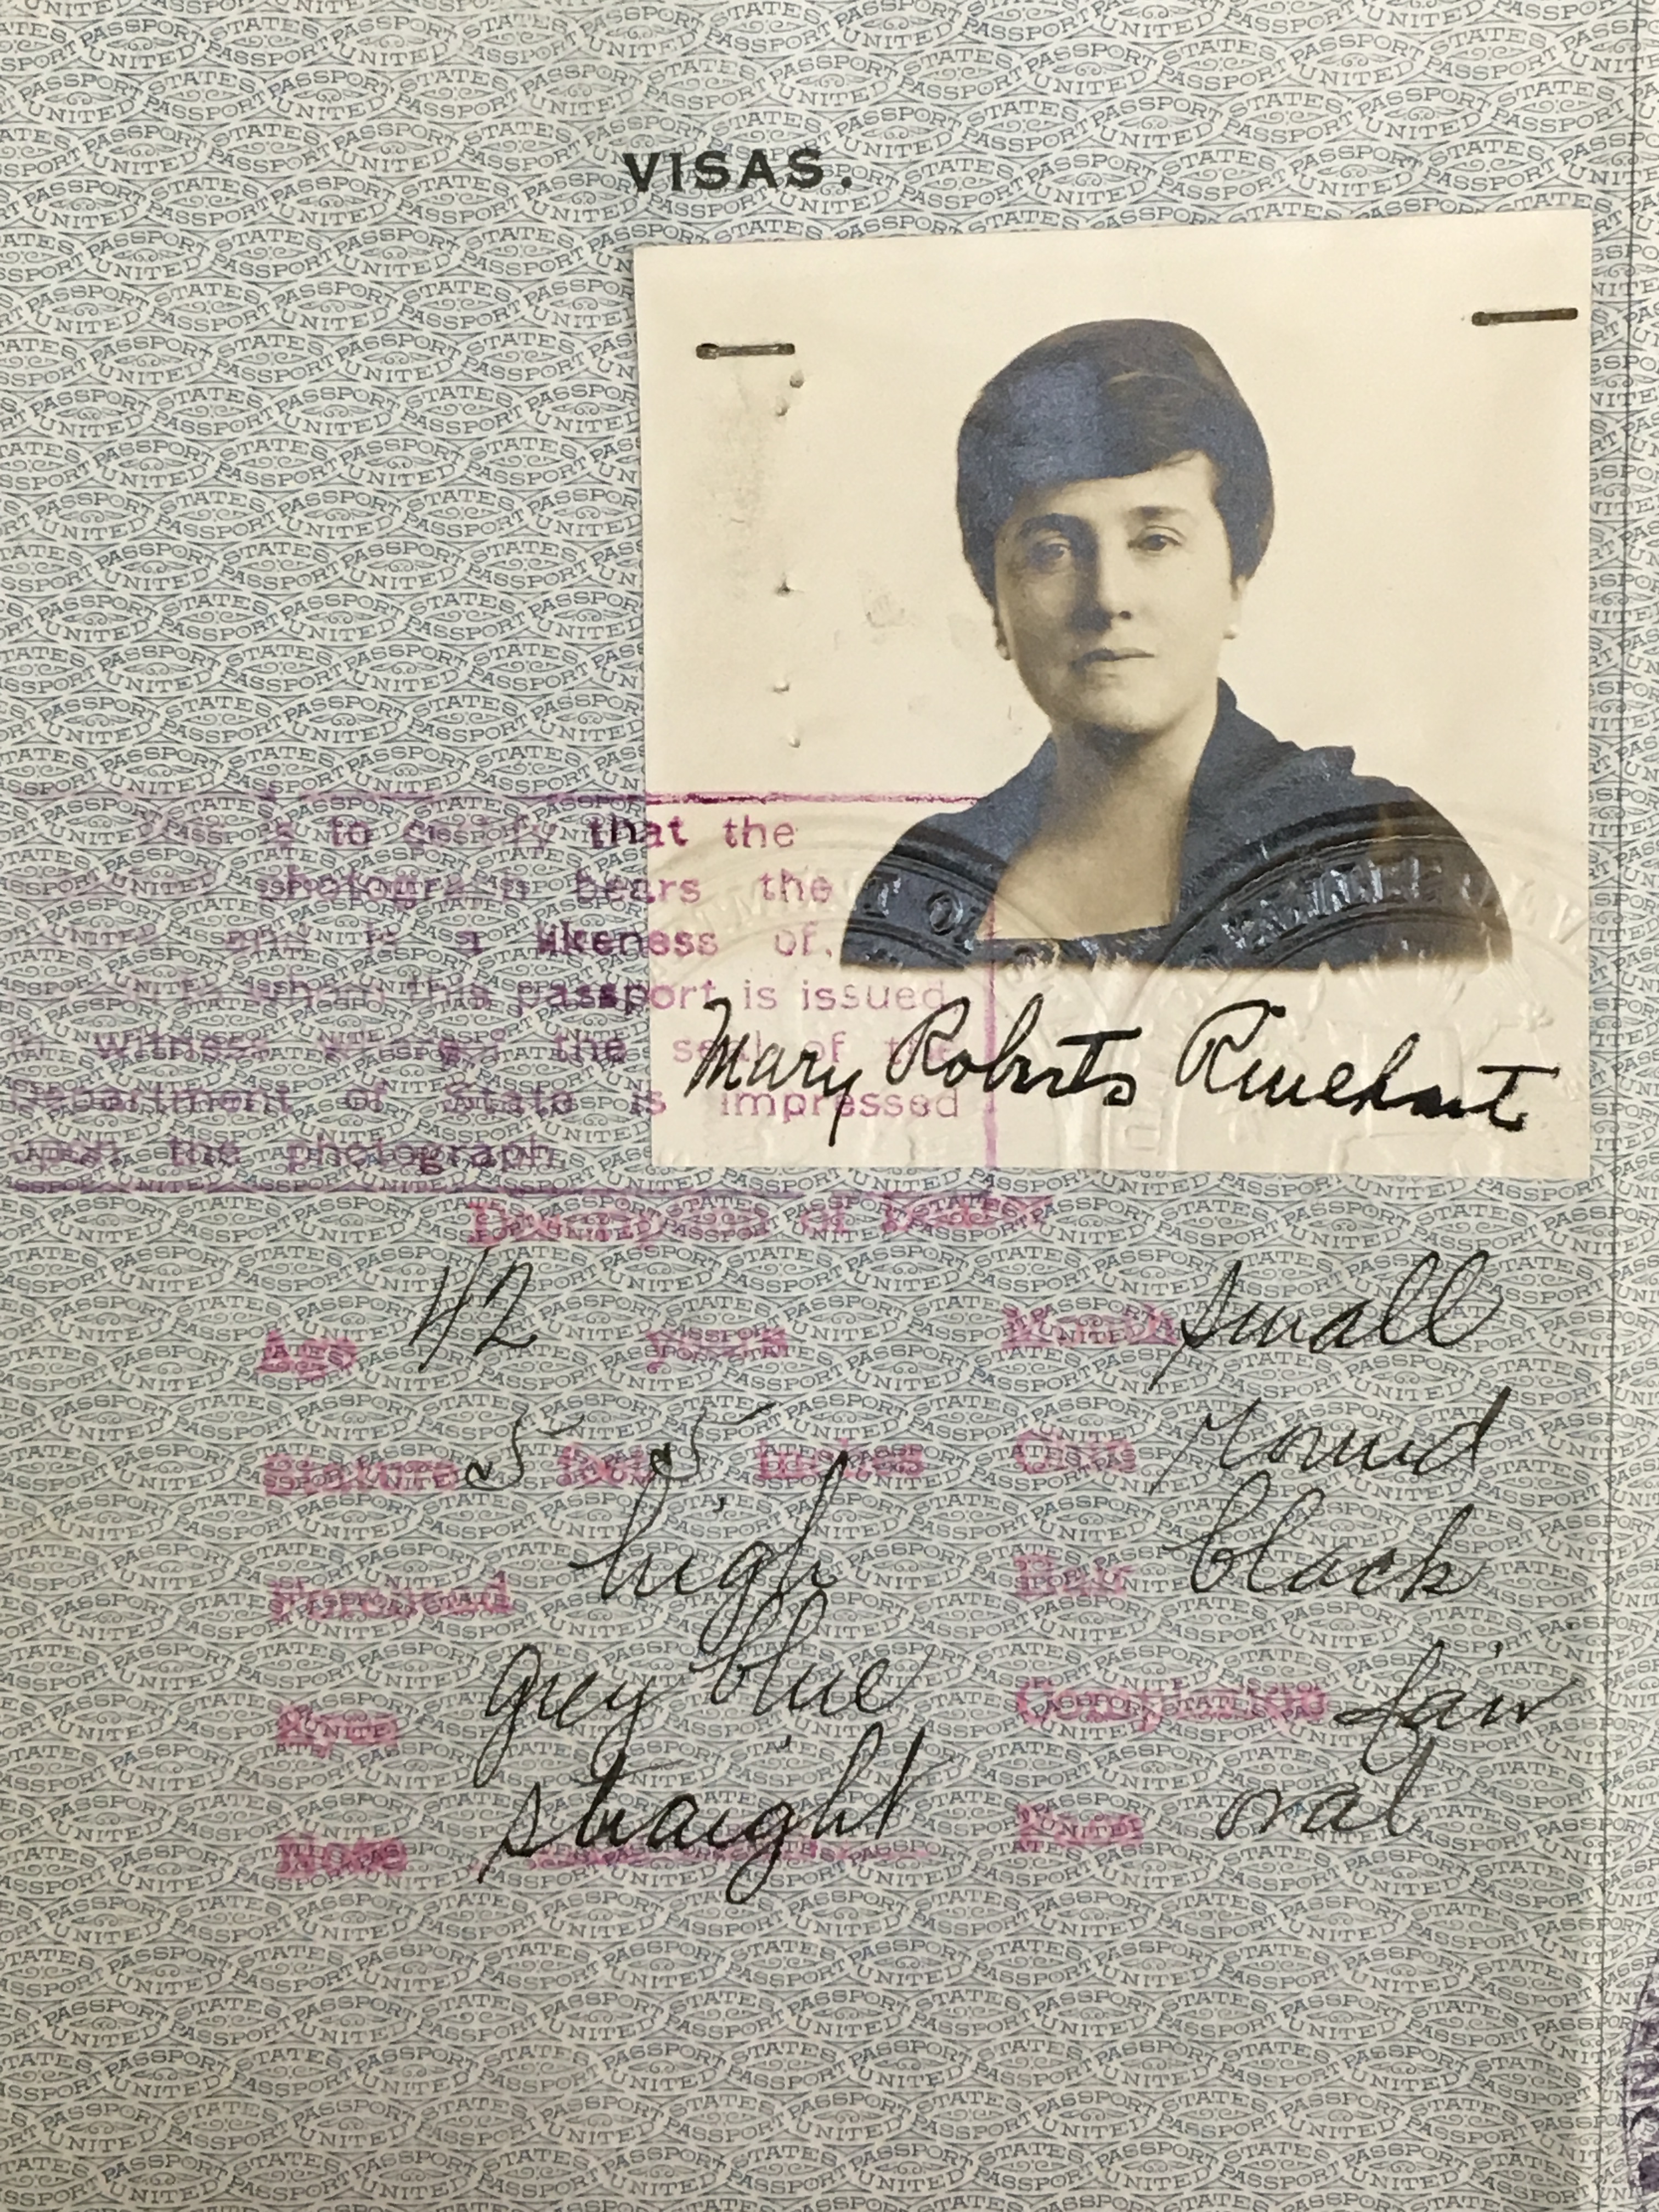 VISAS.
This is to certify that the
photograph bears the
and is a likeness of,
whom this passport is issued
In witness whereof the seal of the
Department of State is impressed
upon the photograph.
Mary Roberts Rinehart
Description of Bearer
Age 42 years Mouth small
Stature 5 feet 5 inches Chin round
Forehead high Hair black
Eyes grey blue Complexion fair
Nose straight Face oval